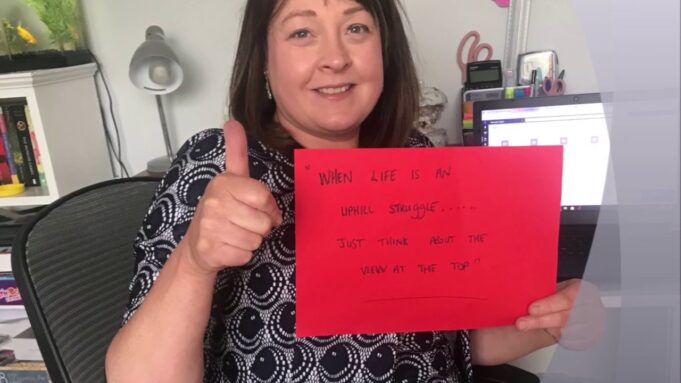 "WHEN LIFE IS AN
UPHILL STRUGGLE.....
JUST THINK ABOUT THE
VIEW AT THE TOP"